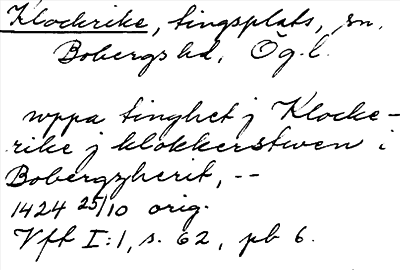 Klockrike, tingsplats, sn.
Bobergs hd, Ögl.
uppa tinghet j Klocke-
rike j klokkerstwen i
Bobergzherit, --
1424 25/10 orig.
Vft I:1, s. 62, pb 6.